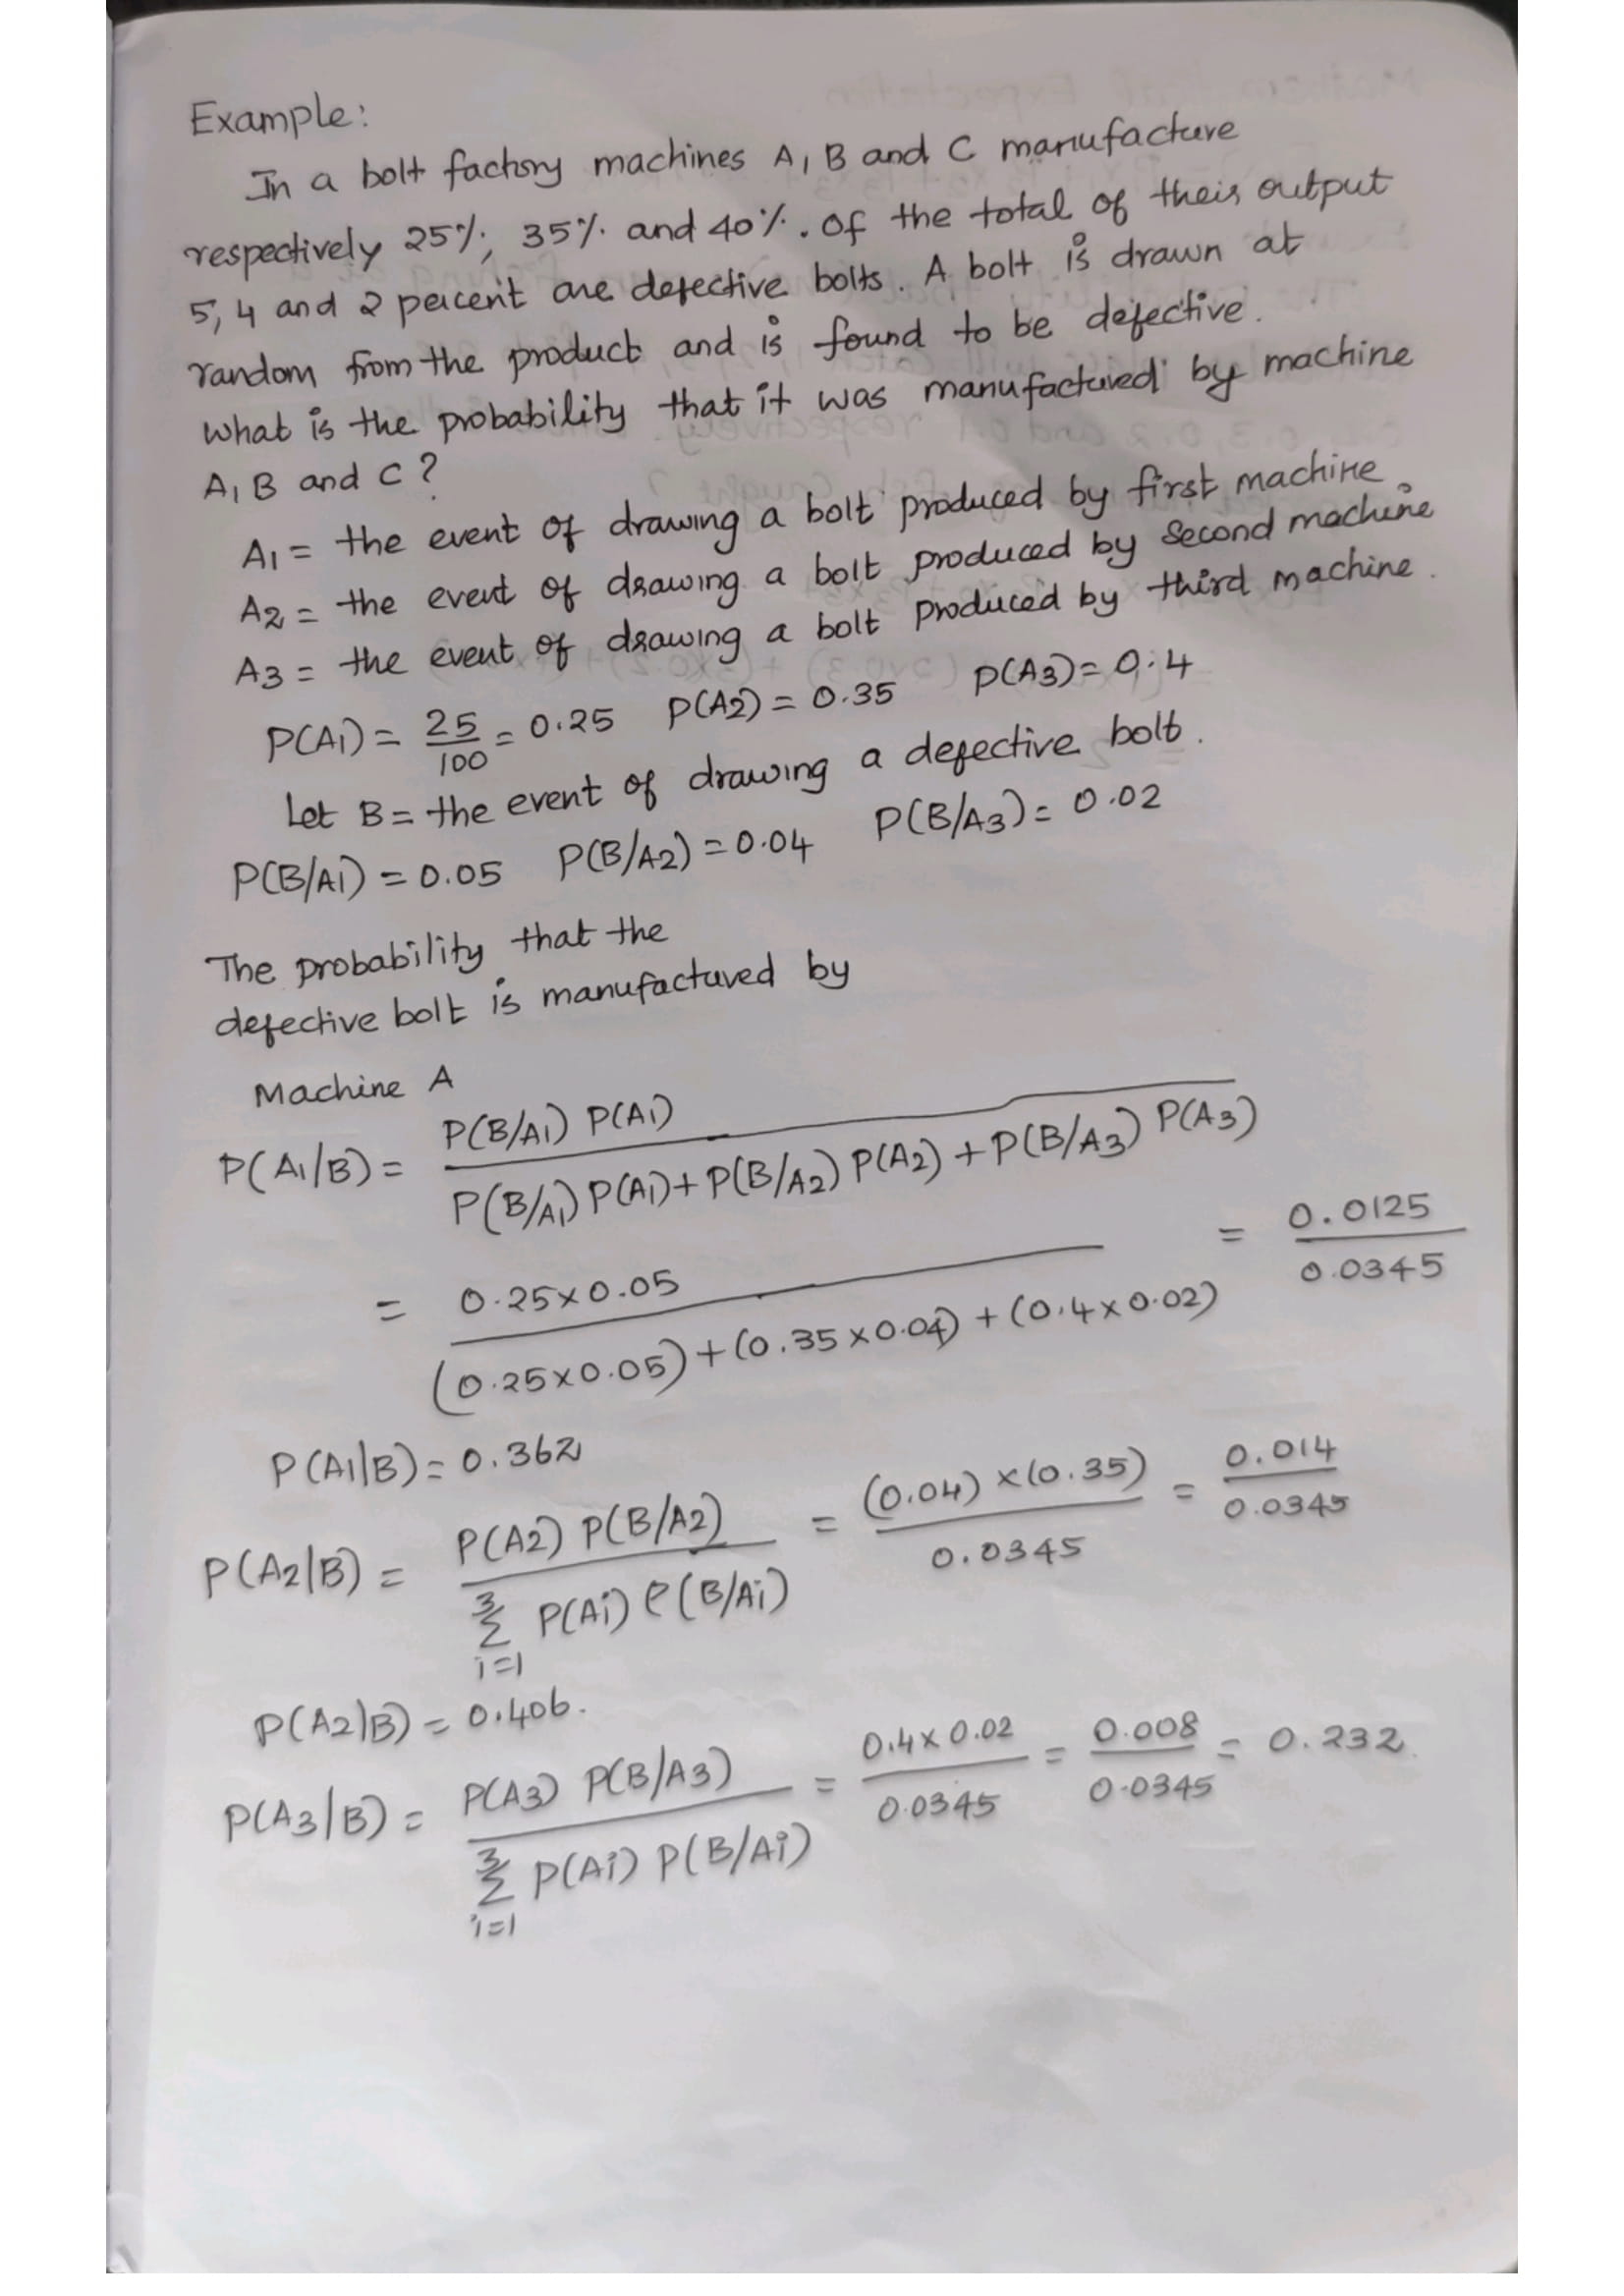 Example:
In a bolt factory machines A, B and C manufacture
respectively 25%, 35% and 40%. of the total of their output
5, 4 and 2 percent are defective bolts. A bolt is drawn at
random from the product and is found to be defective.
what is the probability that it was manufactured by machine
A, B and C?
A1 = the event of drawing a bolt produced by first machine.
A2 = the event of drawing a bolt produced by second machine
A3 = the event of drawing a bolt produced by third machine.
P(A1) = 25/100 = 0.25 P(A2) = 0.35 P(A3) = 0.4
Let B = the event of drawing a defective bolt.
P(B/A1) = 0.05 P(B/A2) = 0.04 P(B/A3) = 0.02
The probability that the
defective bolt is manufactured by
Machine A
P(A1/B) = P(B/A1) P(A1) / P(B/A1) P(A1) + P(B/A2) P(A2) + P(B/A3) P(A3)
= 0.25 x 0.05 / (0.25 x 0.05) + (0.35 x 0.04) + (0.4 x 0.02) = 0.0125 / 0.0345
P(A1|B) = 0.362
P(A2|B) = P(A2) P(B/A2) / 3 Σ i=1 P(Ai) P(B/Ai) = (0.04) x (0.35) / 0.0345 = 0.014 / 0.0345
P(A2|B) = 0.406.
P(A3|B) = P(A3) P(B/A3) / 3 Σ i=1 P(Ai) P(B/Ai) = 0.4 x 0.02 / 0.0345 = 0.008 / 0.0345 = 0.232.